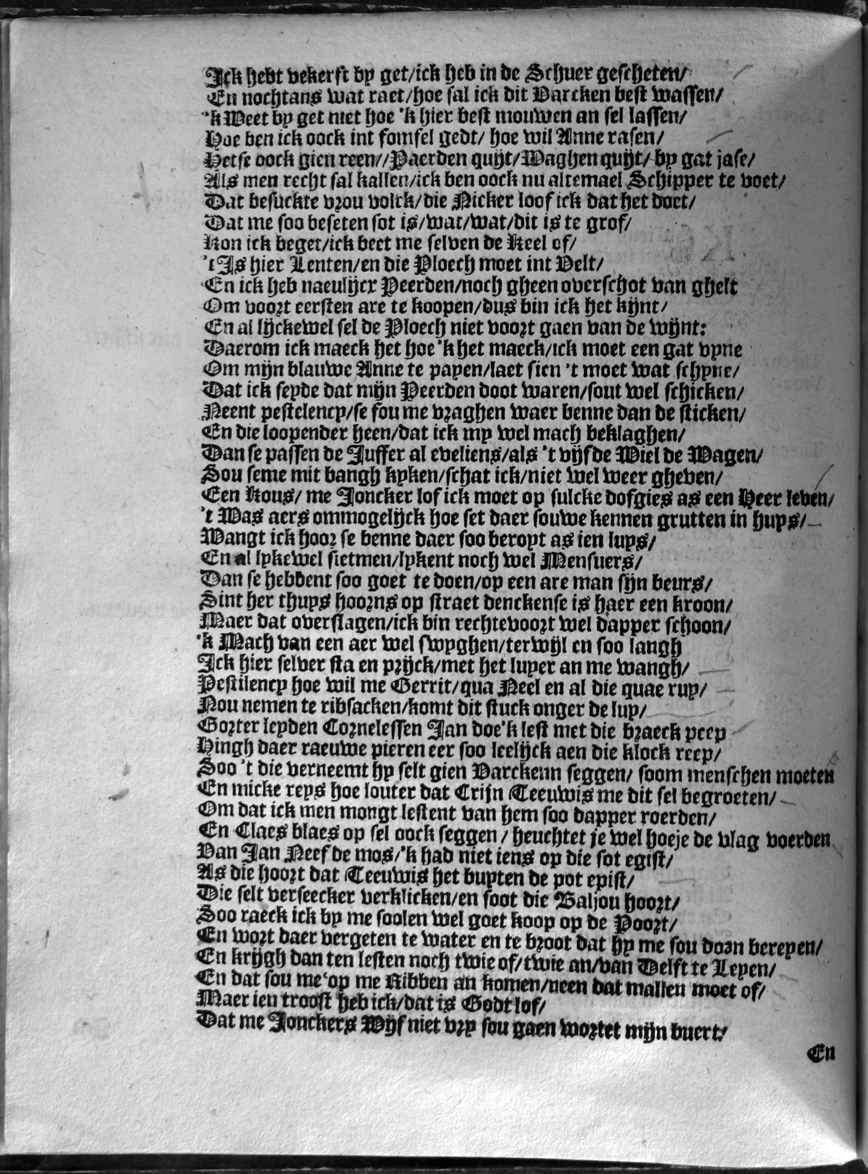 Ick hebt vekerst by get/ick heb in de Schuer gescheten/
En nochtans wat raet/hoe sal ick dit Varcken best wassen/
'k Weet by get niet hoe 'k hier best mouwen an sel lassen/
Hoe ben ick oock int fomsel gedt/ hoe wil Anne rasen/
Hetse oock gien reen//Paerden quijt/Waghen quijt/ by gat jase/
Als men recht sal kallen/ick ben oock nu altemael Schipper te voet/
Dat besuckte vrou volck/die Nicker loof ick dat het doet/
Dat me soo beseten sot is/wat/wat/dit is te grof/
Kon ick beget/ick beet me selven de Keel of/
't Is hier Lenten/en die Ploech moet int Velt/
En ick heb naeulijcx Peerden/noch gheen overschot van ghelt
Om voort eersten are te koopen/dus bin ick het kijnt/
En al lijckewel sel de Ploech niet voort gaen van de wijnt:
Daerom ick maeck het hoe 'k het maeck/ick moet een gat vyne
Om mijn blauwe Anne te payen/laet sien 't moet wat schyne/
Dat ick seyde dat mijn Peerden doot waren/sout wel schicken/
Neent pestelency/se sou me vraghen waer benne dan de sticken/
En die loopender heen/dat ick my wel mach beklaghen/
Dan se passen de Juffer al eveliens/als 't vijfde Wiel de Wagen/
Sou seme mit bangh kyken/schat ick/niet wel weer gheven/
Een Kous/ me Joncker lof ick moet op sulcke dofgies as een Heer leven/
't Was aers ommogelijck hoe set daer souwe kennen grutten in huys/
Wangt ick hoor se benne daer soo beroyt as ien luys/
En al lykewel sietmen/lykent noch wel Mensuers/
Dan se hebbent soo goet te doen/op een are man sijn beurs/
Sint her thuys hoorns op straet denckense is haer een kroon/
Maer dat overslagen/ick bin rechtevoort wel dapper schoon/
'k Mach van een aer wel swyghen/terwyl en soo langh
Ick hier selver sta en prijck/met het luyer an me wangh/
Pestilency hoe wil me Gerrit/qua Neel en al die quae ruy/
Nou nemen te ribsacken/komt dit stuck onger de luy/
Gorter leyden Cornelessen Jan doe'k lest met die braeck peep
Hingh daer raeuwe pieren eer soo leelijck aen die klock reep/
Soo 't die verneemt hy selt gien Varckenn seggen/ soom menschen moeten
En micke reys hoe louter dat Crijn Teeuwis me dit sel begroeten/
Om dat ick men mongt lestent van hem soo dapper roerden/
En Claes blaes op sel oock seggen / heuchtet je wel hoeje de vlag voerden
Van Jan Neef de mos/'k had niet iens op die sot egist/
As die hoort dat Teeuwis het buyten de pot epist/
Die selt verseecker verklicken/en soot die Baljou hoort/
Soo raeck ick by me soolen wel goet koop op de Poort/
En wort daer vergeten te water en te broot dat hy me sou doorn bereyen/
En krijgh dan ten lesten noch twie of/twie an/van Delft te Leyen/
En dat sou me op me Ribben an komen/neen dat mallen moet of/
Maer ien troost heb ick/dat is Godt lof/
Dat me Jonckers Wijf niet vry sou gaen wortet mijn buert/
En